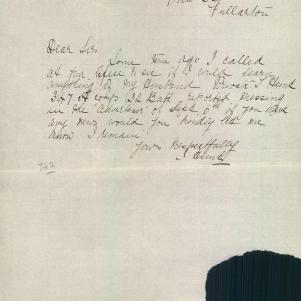 Fullarton
Dear Sir
Some time ago I called
at your to see if I could learn
anything of my Husband Private J Hunt
347 A Comp 32 Batt reported Missing
in the Advertiser of Sept 6th if you have
any News would you kindly let me
know I remain
Yours Respectfully
Hunt